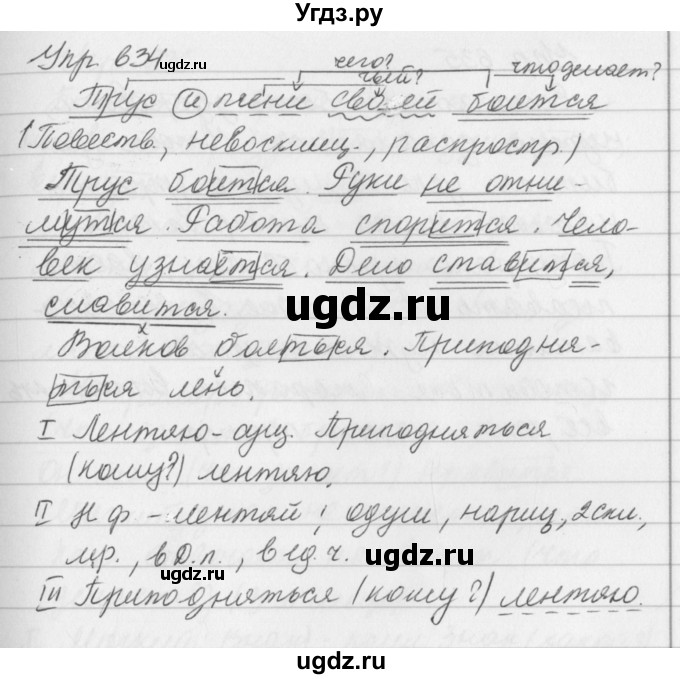 Угдз.ру
Упр. 634
ugdz.ru
чего?
чьей?
что делает?
Трус и тени своей боится
(Повеств., невосклиц., распростр.)
Трус боится. Руки не отни-
мутся. Работа спорится. Чело-
век узнаётся. Дело ставится,
славится.
ugdz.ru
Волков бояться. Приподня-
ться лень.
I Лентяю - сущ. Приподняться
(кому?) лентяю.
II Н.ф. - лентяй; одуш., нариц., 2 скл.,
м.р., в Д.п., в ед.ч.
ugdz.ru
III Приподняться (кому?) лентяю.
ugdz.ru
ugdz.ru